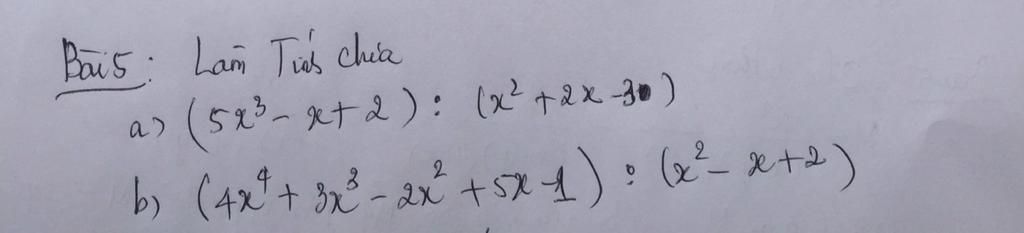 Bài 5: Làm Tính chia
a) (5x³ - x + 2) : (x² + 2x - 3)
b) (4x⁴ + 3x³ - 2x² + 5x - 1) : (x² - x + 2)